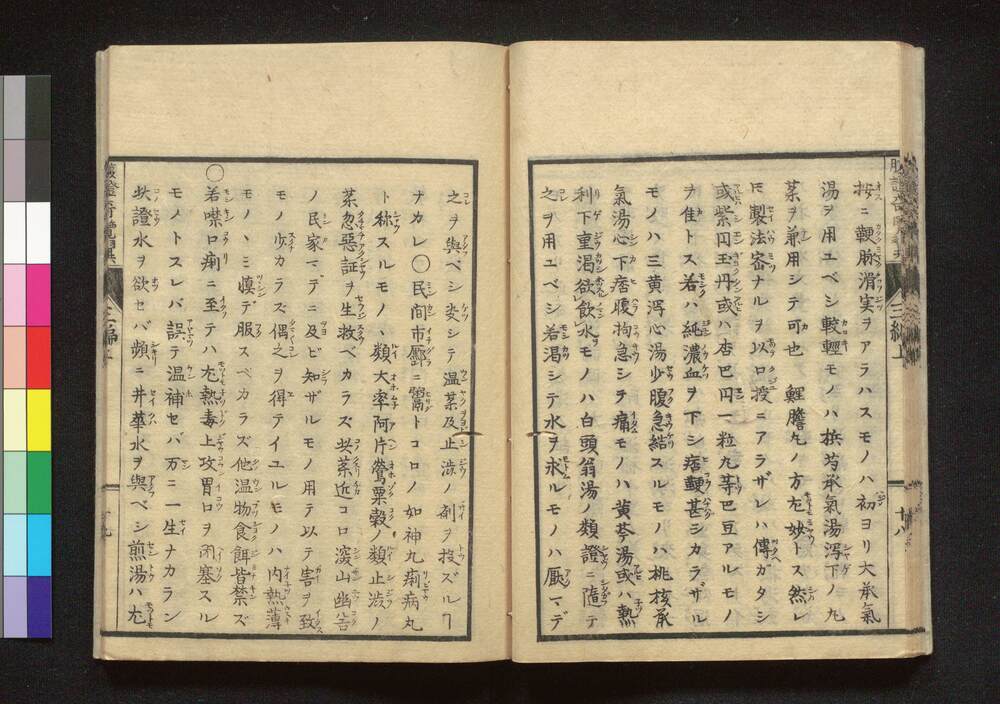 按ニ鞕脉滑実ヲアラハスモノハ初ヨリ大承氣
湯ヲ用ユベシ較輕モノハ梹芍承氣湯瀉下ノ丸
薬ヲ兼用シテ可也 鯉膽丸ノ方尤妙トス然レ
𪜈製法審ナルヲ以口授ニアラザレハ傳ガタシ
或紫円玉丹或ハ杏巴円一粒丸等巴豆アルモノ
ヲ佳トス若ハ純濃血ヲ下シ痞鞕甚シカラザル
モノハ三黄瀉心湯少腹急結スルモノハ桃核承
氣湯心下痞腹拘急シヲ痛モノハ黄芩湯或ハ熱
利下重渇欲飲水モノハ白頭翁湯ノ類證ニ隨テ
之ヲ用ユベシ若渇シテ水ヲ求ルモノハ厭マデ
三編上
十八
之ヲ與ベシ决シテ温薬及止渋ノ剤ヲ投ズルヿ
ナカレ〇民間市鄽ニ鬻トコロノ如神丸痢病丸
ト称スルモノ、類大率阿片鶯粟穀ノ類止渋ノ
薬忽惡証ヲ生救ベカラズ此薬近コロ深山幽谷
ノ民家マデニ及ビ知ザルモノ用テ以テ害ヲ致
モノ少カラズ偶之ヲ得テイユルモノハ内熱薄
モノヽミ慎デ服スベカラズ他温物食餌皆禁ズ
〇若噤口痢ニ至テハ尤熱毒上攻胃口ヲ閉塞スル
モノトスレバ誤テ温補セバ万ニ一生ナカラン
此證水ヲ欲セバ頻ニ井華水ヲ與ベシ煎湯ハ尤